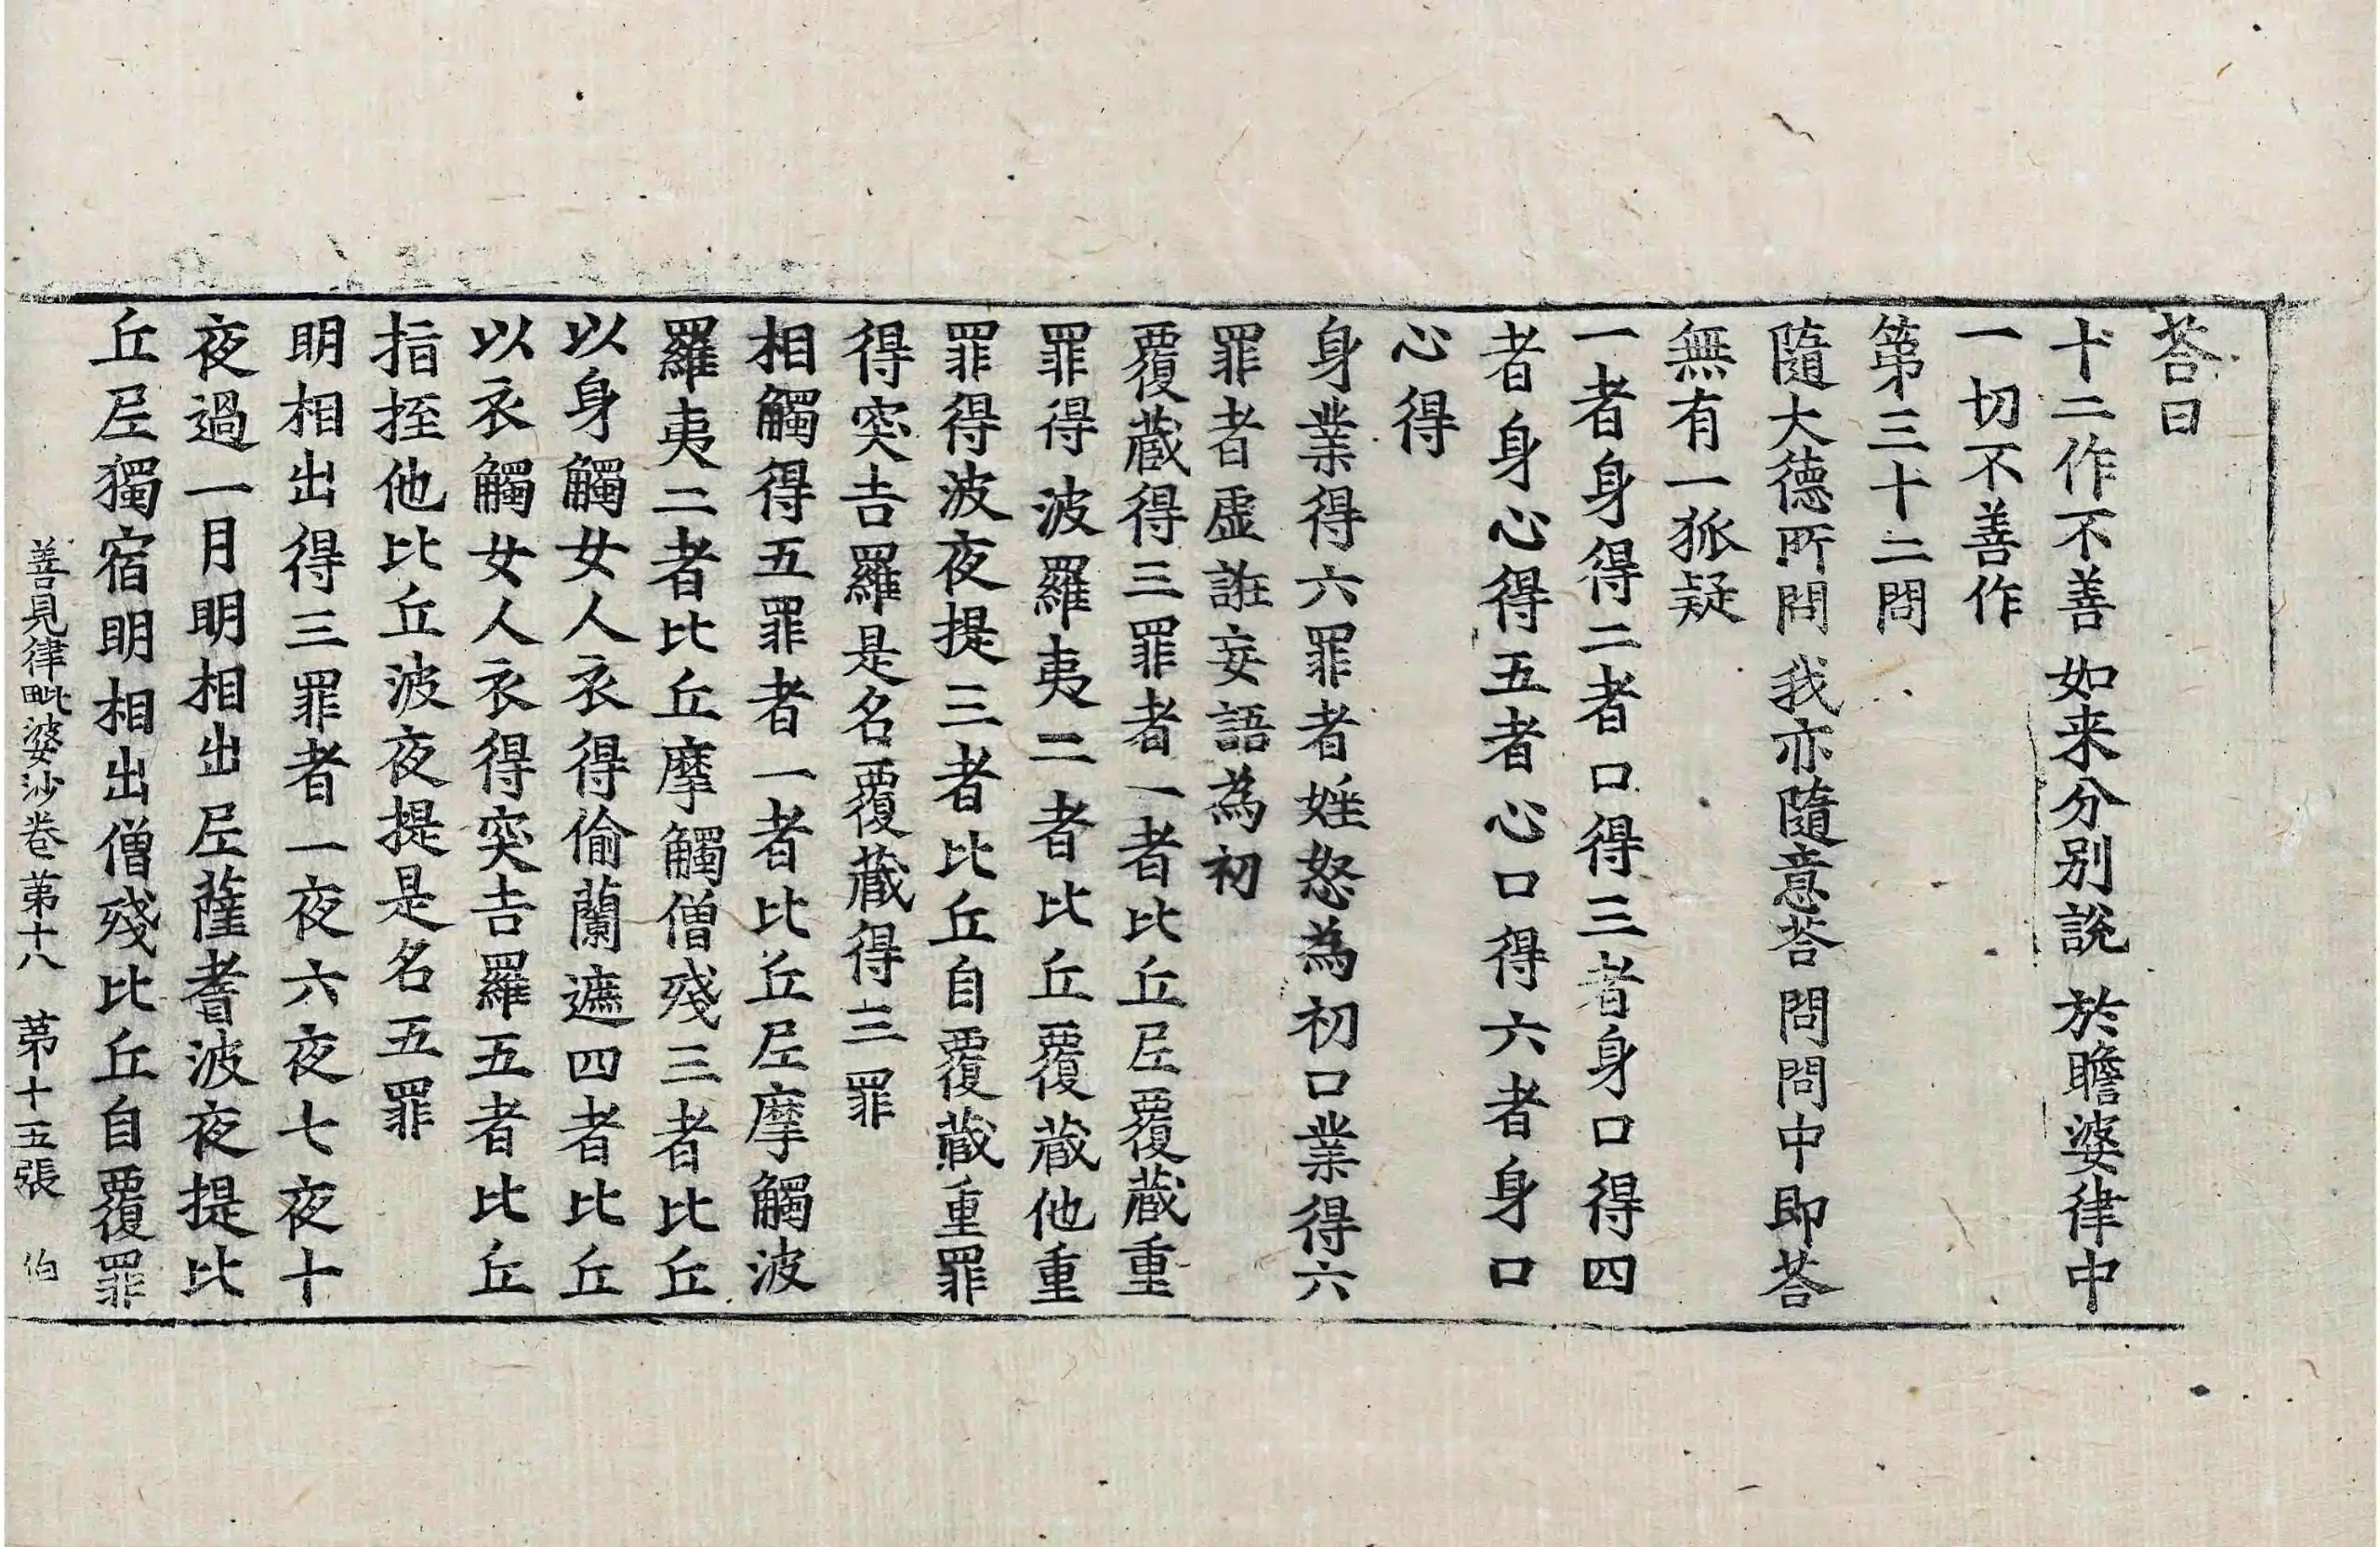 荅曰
十二作不善 如来分別說 於瞻婆律中
一切不善作
第三十二問
隨大德所問 我亦隨意荅 問問中即荅
無有一狐疑
一者身得二者口得三者身口得四
者身心得五者心口得六者身口
心得
身業得六罪者婬怒為初口業得六
罪者虛誑妄語為初
覆蔵得三罪者一者比丘𡰱覆蔵重
罪得波羅夷二者比丘覆蔵他重
罪得波夜提三者比丘自覆蔵重罪
得突吉羅是名覆蔵得三罪
相觸得五罪者一者比丘𡰱摩觸波
羅夷二者比丘摩觸僧殘三者比丘
以身觸女人衣得偷蘭遮四者比丘
以衣觸女人衣得突吉羅五者比丘
指挃他比丘波夜提是名五罪
明相出得三罪者一夜六夜七夜十
夜過一月明相出𡰱薩耆波夜提比
丘𡰱獨宿明相出僧殘比丘自覆罪
善見律毗婆沙卷第十八 第十五張 伯